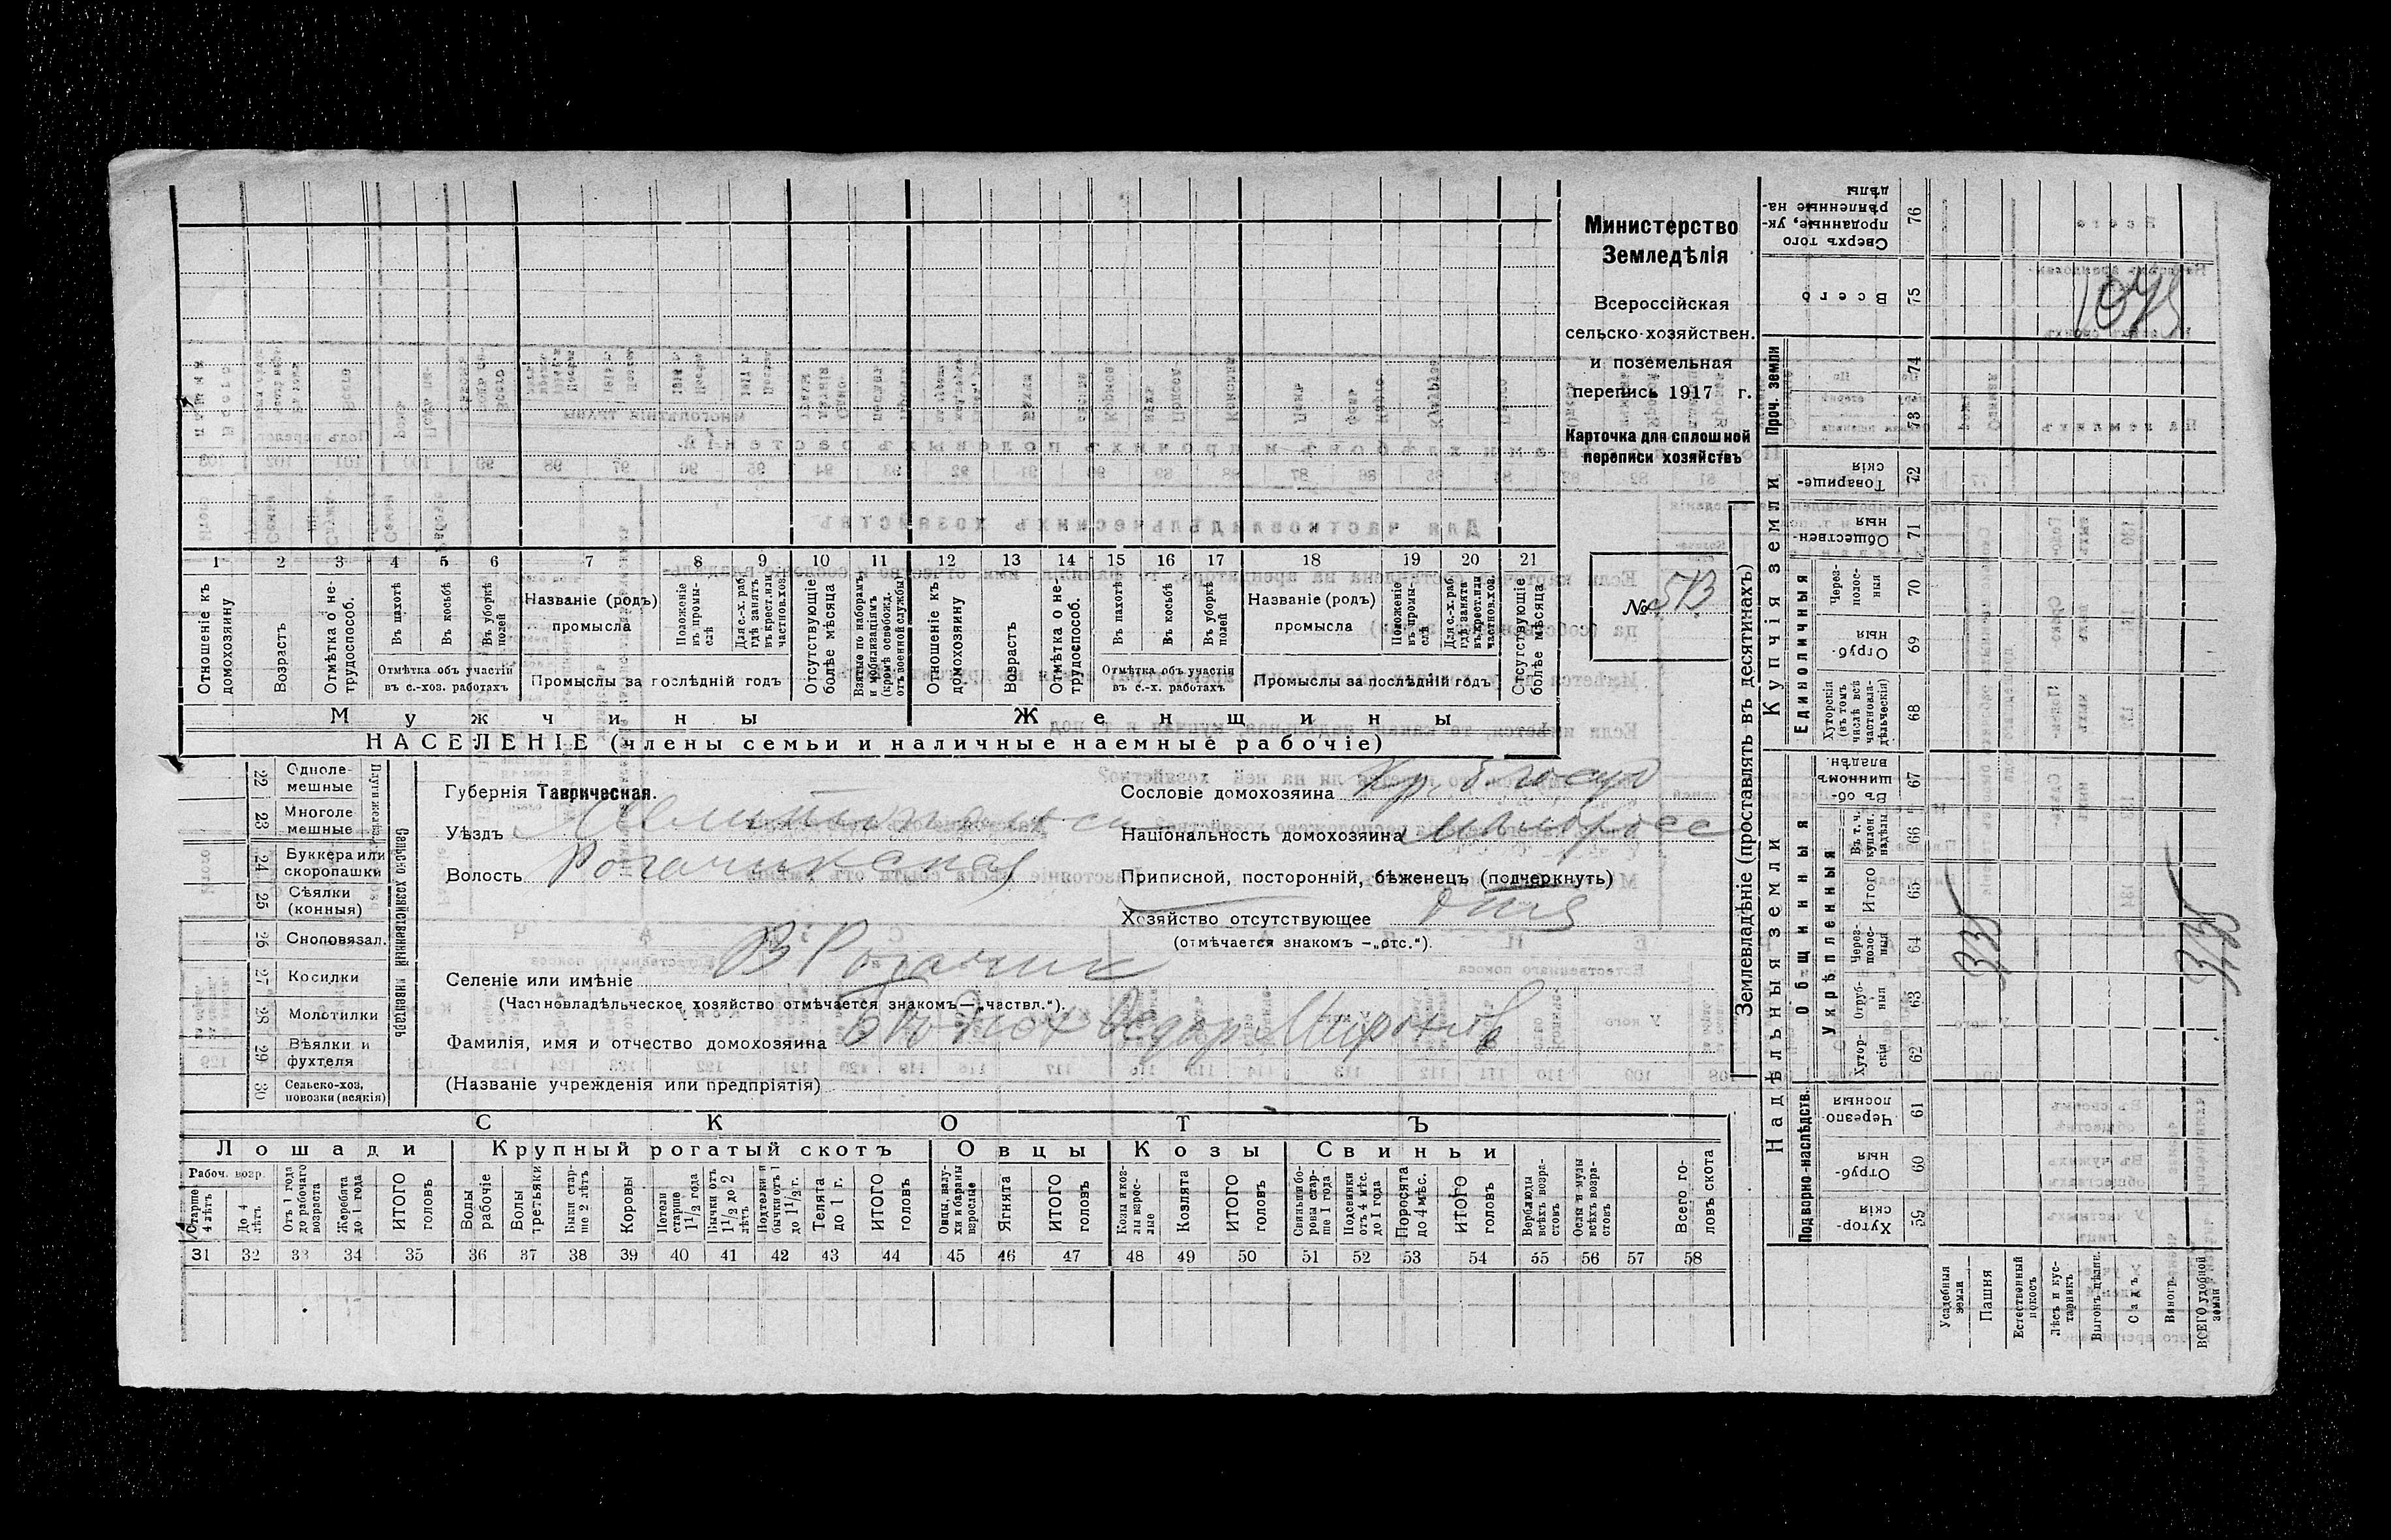 Министерство
Земледѣлія
Всероссійская
сельско-хозяйствен.
и поземельная
перепись 1917 г.
Карточка для сплошной
переписи хозяйствъ
№ 573
1 2 3 4 5 6 7 8 9 10 11 12 13 14 15 16 17 18 19 20 21
Отношеніе къ домохозяину
Возрастъ
Отмѣтка о не-трудоспособ.
Въ пахотѣ
Въ косьбѣ
Въ уборкѣ полей
Отмѣтка объ участіи въ с.-хоз. работахъ
Названіе (родъ) промысла
Положеніе въ промы-слѣ
Для с.-х. раб. гдѣ занятъ въ крест. или частнов. хоз.
Промыслы за послѣдній годъ
Отсутствующіе болѣе мѣсяца
Взятые по наборамъ и мобилизаціямъ (кромѣ освобожд. отъ военной службы)
Отношеніе къ домохозяину
Возрастъ
Отмѣтка о не-трудоспособ.
Въ пахотѣ
Въ косьбѣ
Въ уборкѣ полей
Отмѣтка объ участіи въ с.-х. работахъ
Названіе (родъ) промысла
Положеніе въ промы-слѣ
Для с.-х. раб. гдѣ занята въ крест. или частнов. хоз.
Промыслы за послѣдній годъ
Отсутствующіе болѣе мѣсяца
Мужчины
Женщины
НАСЕЛЕНІЕ (члены семьи и наличные наемные рабочіе)
Сельско хозяйственный инвентарь
22 Одноле-мешные
23 Многоле мешные
24 Буккера или скоропашки
25 Сѣялки (конныя)
26 Сноповязал.
27 Косилки
28 Молотилки
29 Вѣялки и фухтеля
30 Сельско-хоз. повозки (всякія)
Губернія Таврическая.
Уѣздъ
Волость Рогачикская
Селеніе или имѣніе В Рогачик
(Частновладѣльческое хозяйство отмѣчается знакомъ—„частвл.“).
Фамилія, имя и отчество домохозяина
(Названіе учрежденія или предпріятія)
Сословіе домохозяина Кр. б госуд
Національность домохозяина малоросс
Приписной, посторонній, бѣженецъ (подчеркнуть)
Хозяйство отсутствующее
(отмѣчается знакомъ —„отс.“).
СКОТЪ
Лошади
Крупный рогатый скотъ
Овцы
Козы
Свиньи
Рабоч. возр.
Старше 4 лѣтъ
До 4 лѣтъ
Отъ 1 года до рабочаго возраста
Жеребята до 1 года
ИТОГО головъ
Волы рабочіе
Волы третьяки
Быки стар-ше 2 лѣтъ
Коровы
Нетели старше 1 1/2 года
Бычки отъ 1 1/2 до 2 лѣтъ
Подтелки и бычки отъ 1 до 1 1/2 г.
Телята до 1 г.
ИТОГО головъ
Овцы, валу-хи и бараны взрослые
Ягнята
ИТОГО головъ
Козы и коз-лы взрос-лые
Козлята
ИТОГО головъ
Свиньи и бо-ровы стар-ше 1 года
Подсвинки отъ 4 мѣс. до 1 года
Поросята до 4 мѣс.
ИТОГО головъ
Верблюды всѣхъ возра-стовъ
Ослы и мулы всѣхъ возра-стовъ
Всего го-ловъ скота
31 32 33 34 35 36 37 38 39 40 41 42 43 44 45 46 47 48 49 50 51 52 53 54 55 56 57 58
Землевладѣніе (проставлять въ десятинахъ)
Надѣльныя земли
Купчія земли
Проч. земли
Подворно-наслѣдств.
Общинныя
Укрѣпленныя
Единоличныя
Хутор-скія 59
Отруб-ныя 60
Черезпо лосныя 61
Хутор-скія 62
Отруб-ныя 63
Через-полос-ныя 64
Итого 65
Въ т. ч. куплен. надѣлы 66
Въ об-щинномъ владѣн. 67
Хуторскія (въ томъ числѣ всѣ частновла-дѣльческія) 68
Отруб-ныя 69
Через-полос-ныя 70
Обществен-ныя 71
Товарище-скія 72
73
74
Всего 75
Сверхъ того проданные, ук-рѣпленные на-дѣлы 76
Усадебныя земля
Пашня
Естественный покосъ
Лѣсъ и кус-тарникъ
Выгонъ дѣлин.
Садъ
Виногр.
ВСЕГО удобной земли